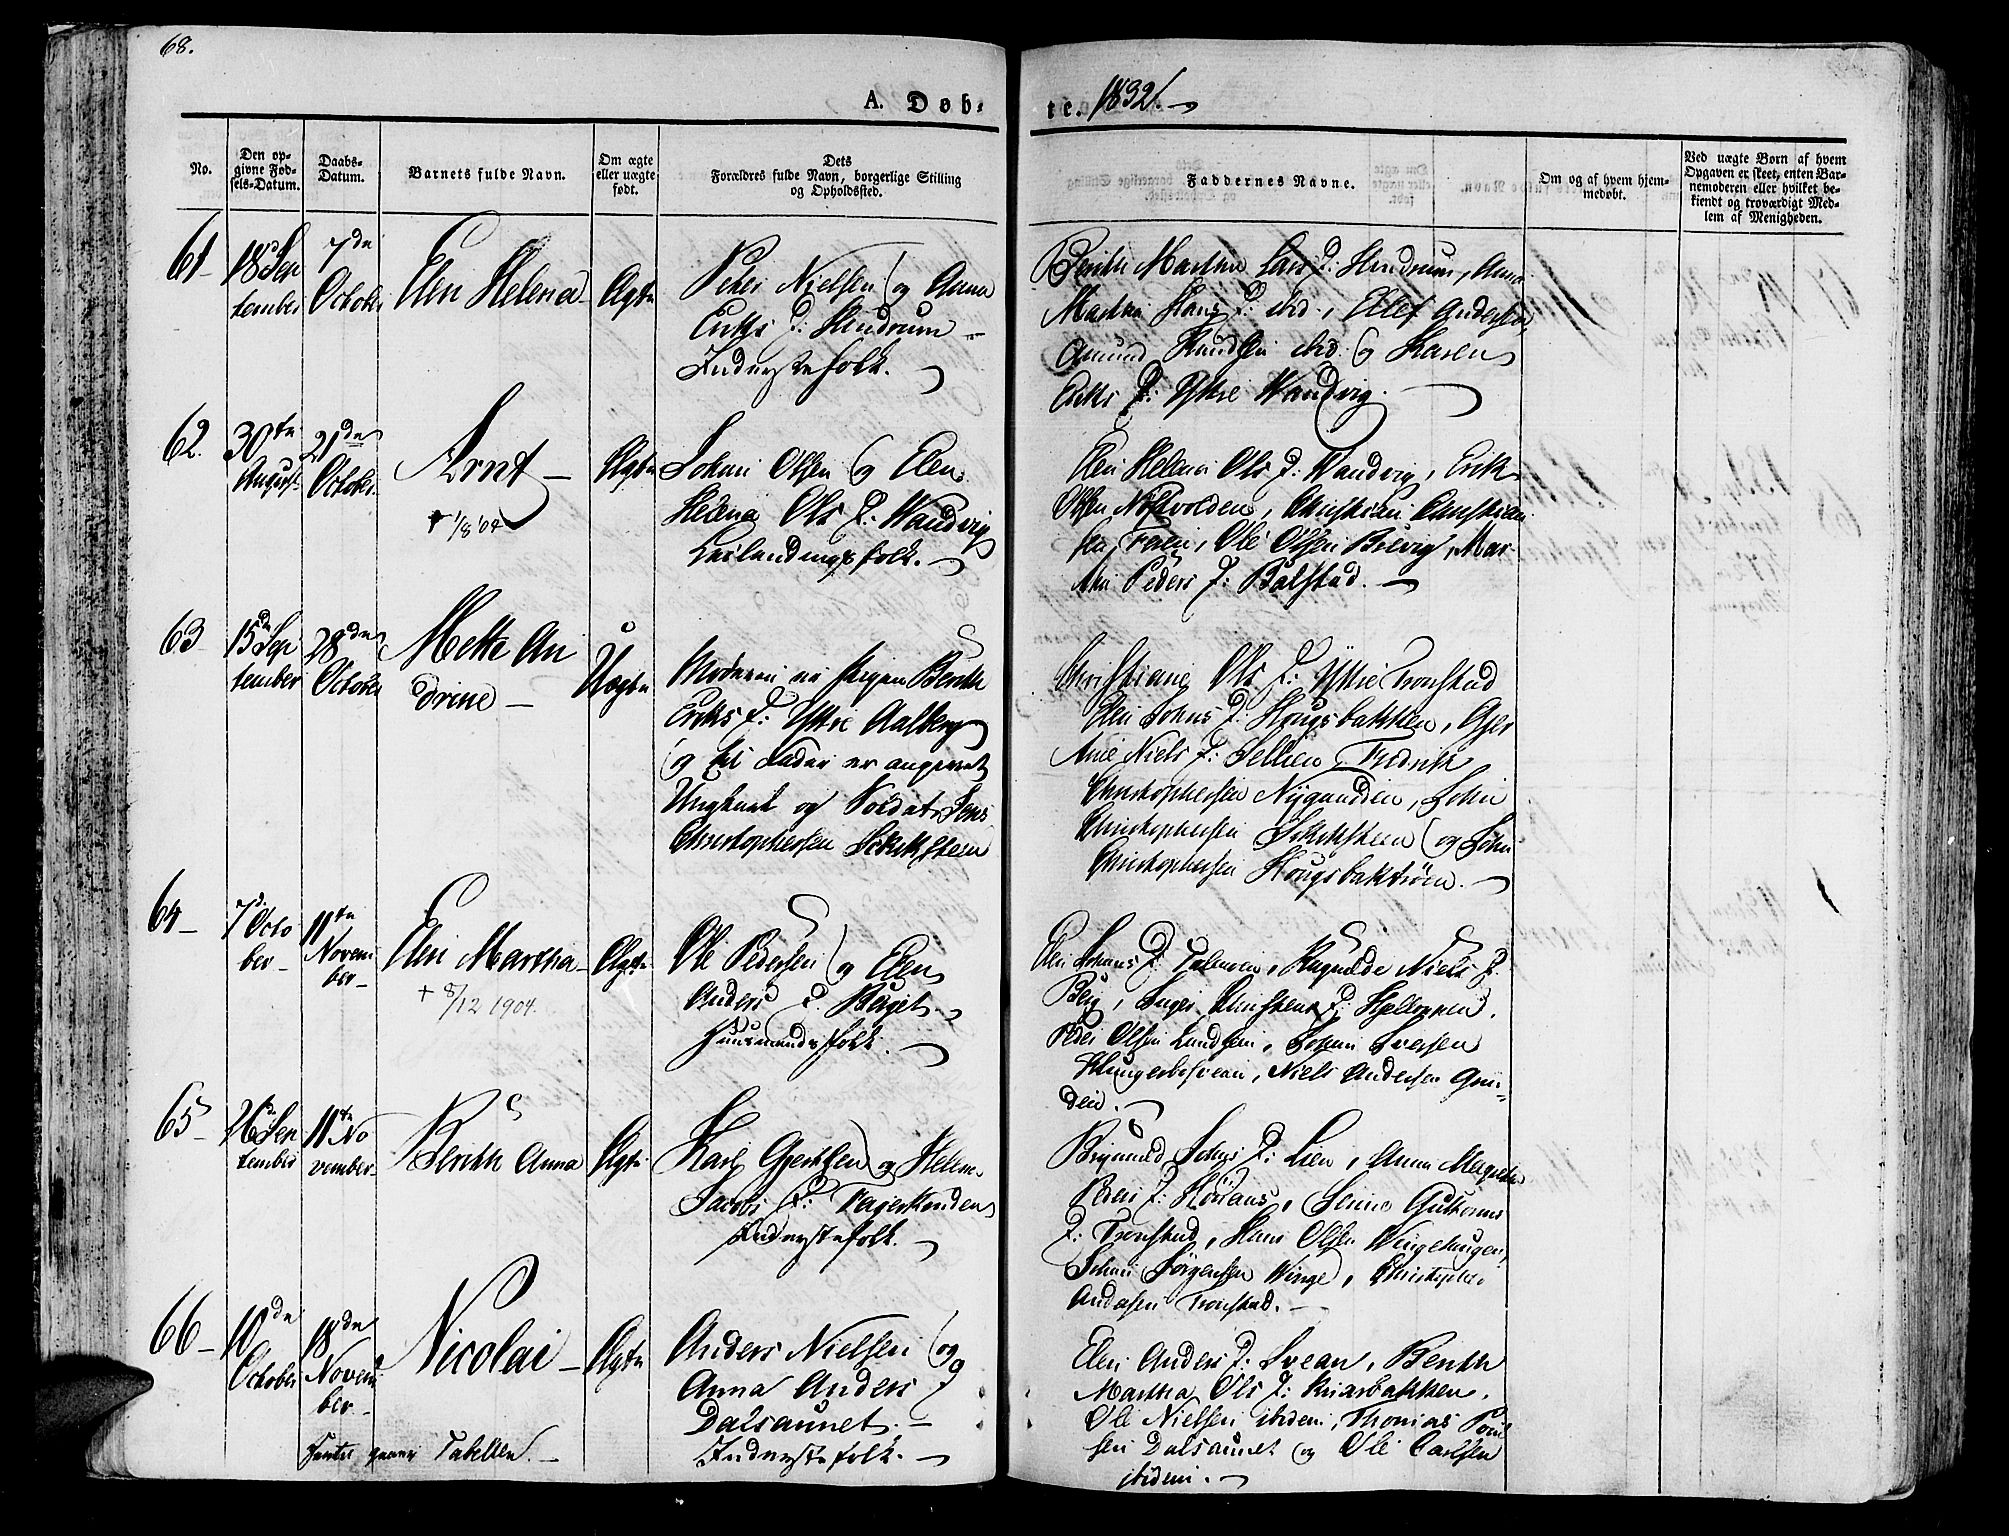 68.
A. Døb-
te. 1832.
No.
Den op-
givne Fød-
sels-Datum.
Daabs-
Datum.
Barnets fulde Navn.
Om ægte
eller uægte
født.
Dets
Forældres fulde Navn, borgerlige Stilling
og Opholdssted.
Faddernes Navne.
Om og af hvem hjem-
medøbt.
Ved uægte Børn af hvem
Opgaven er skeet, enten Bar-
nemoderen eller hvilket be-
kiendt og troværdigt Med-
lem af Menigheden.
61
18 Sep
tember
7de
October
Elen Helena
Ægte
Peder Nielsen og Anna
Eriks D: Hindrum
Inderstefolk.
Berithe Martha Lars D: Hindrum, Anna
Martha Hans D: ibid., Ellef Andersen
Amund Knudsen ibid. og Karen
Eriks D: Yttre Wandvig.
62.
30te
August
21de
October
Arnt
† 1/8 '04
Ægte
Johan Olsen og Elen
Helena Ols D: Wandvig
folk.
Elen Helena Ols D: Wandvig, Erik
Olsen Næsvolden, Christian Christian
sen, Ole Olsen Belvig, Mar-
tha Peders D: Balstad.
63
15de Sep
tember
28de
October
Mette An
drine
Uægte
Moderen er Pigen Berith
Eriks D: Yttre Aalberg
og til Fader er angivet
Ungkarl og Soldat Jens
Christophersen
Christiane Ols D: Yttre Tronstad
Elen Johns D: Hougsbakken,
Ane Niels D: Sellien, Fredrik
Christophersen, John
Christophersen og John
Christophersen
64
7de Octo
ber
11te
Novem
ber
Elen Martha
† 8/12 1904.
Ægte
Ole Pedersen og Elen
Anders D. Berget
Huusmandsfolk.
Elen Johans D: Ragnilde Niels D:
Berg, Inger Christens D:
Peder Olsen, Johan Iversen
Niels Andersen Grin-
den.
65
26de Sep
tember
11te No
vember
Berith Anna
Ægte
Karl Gjertsen og Helena
Jacobs D: Fagerstrinden
Inderstefolk.
Johns D: Lien, Anna Margretha
Peders D: Guttorms
D: Tronstad, Hans Olsen Wingehaugen
Johan Jørgensen Winge, Christopher
Andersen Tronstad.
66
10de
October
18de
Novem
ber
Nicolai
Ægte
Anders Nielsen og
Anna Anders D
Dalsaunet.
Inderstefolk.
Elen Anders D: Svean, Berith
Martha Ols D: bakken.
Ole Nielsen ibidem, Thomas
sen Dalsaunet og Ole Carlsen
ibidem.
Tabellen.